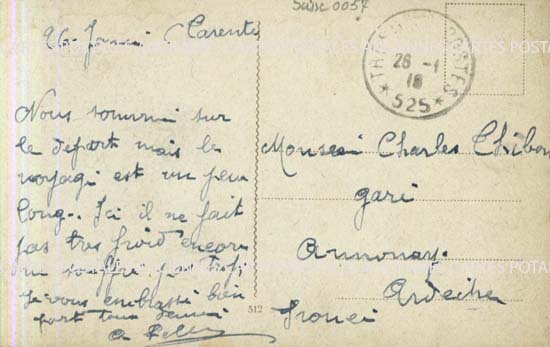 Suisse 0057
26 Janvi Tarente
TRESOR ET POSTES
26 -1
18
* 525 *
Nous sommi sur
le depart mais le
voyagi est un peu
long. Ici il ne fait
pas tres froid encore
on souffre pas trop
Je vous embrasse bien
fort tous deux
Monsieui Charles Chibon
gari
Annonay
Ardèche
France
512